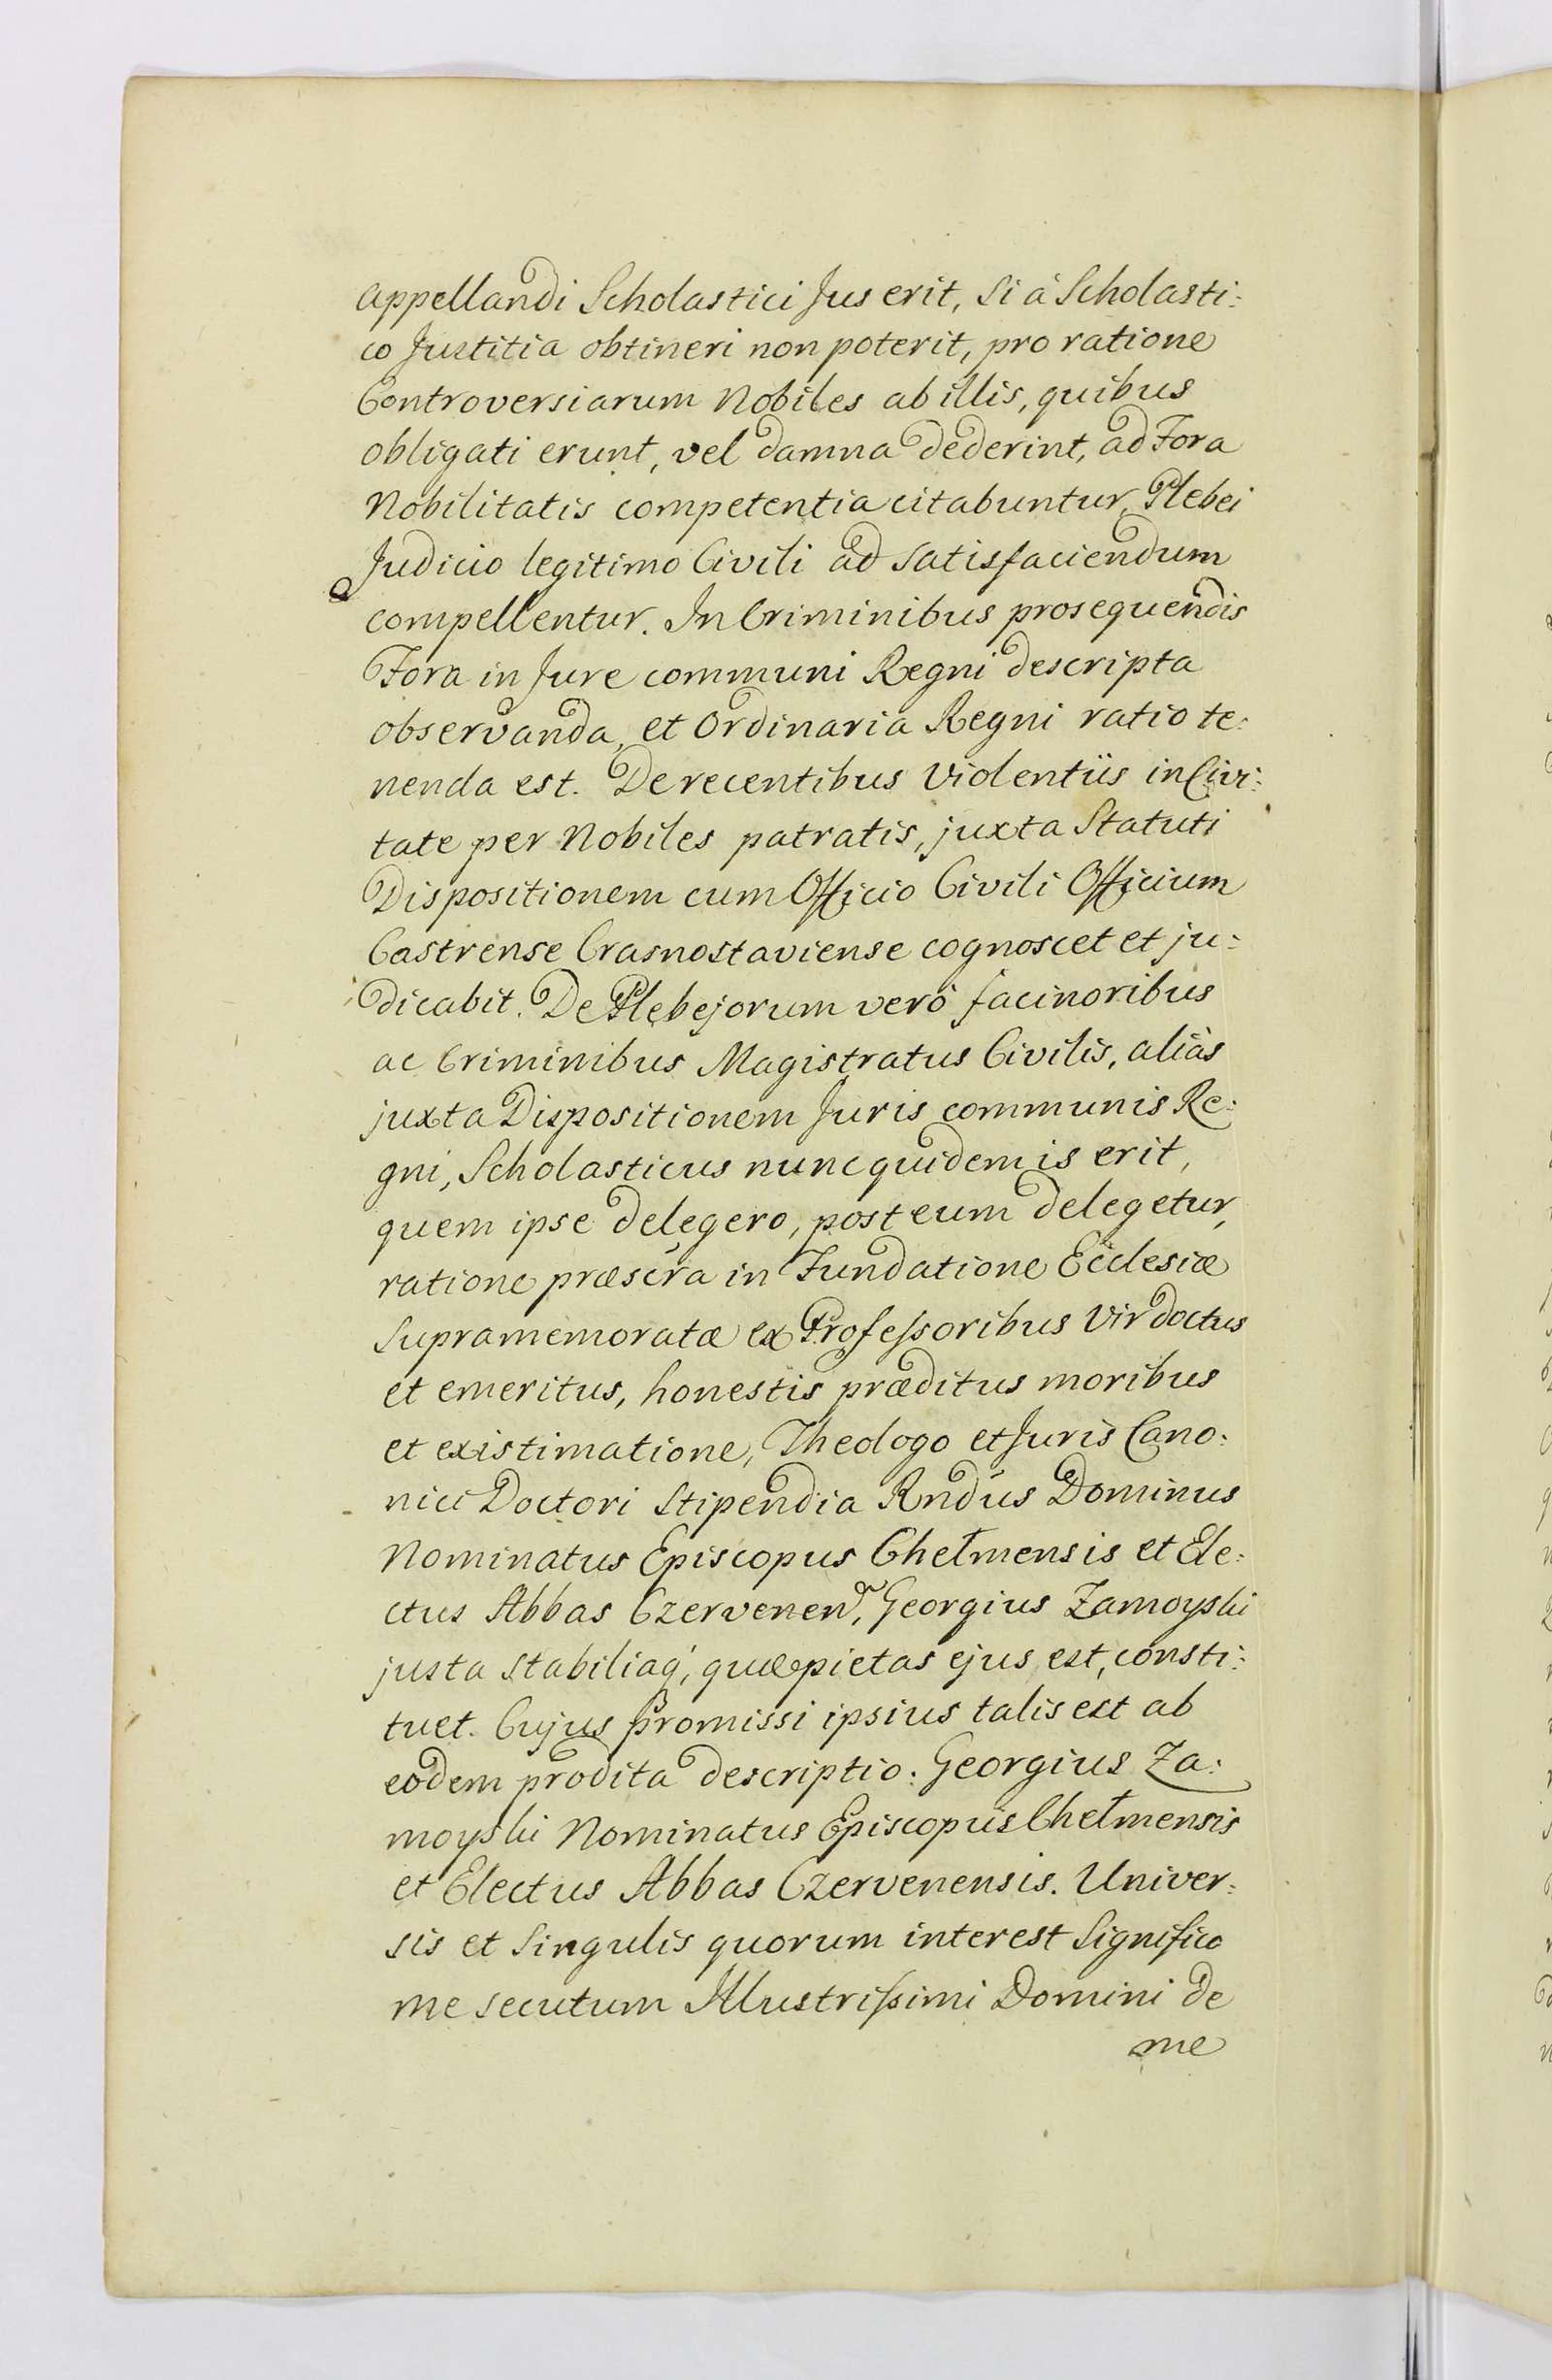 appellandi Scholastici Jus erit, Si à Scholasti:
co Justitia obtineri non poterit, pro ratione
Controversiarum Nobiles ab illis, quibus
obligati erunt, vel damna dederint, ad Fora
Nobilitatis competentia citabuntur, Plebei
Judicio legitimo Civili ad satisfaciendum
compellentur. In Criminibus prosequendis
Fora in Jure communi Regni descripta
observanda, et Ordinaria Regni ratio te:
nenda est. De recentibus Violentiis in Civi:
tate per Nobiles patratis, juxta Statuti
Dispositionem cum Officio Civili Officium
Castrense Crasnostaviense cognoscet et ju:
dicabit. De Plebejorum verò facinoribus
ac Criminibus Magistratus Civilis, aliàs
juxta Dispositionem Juris communis Re:
gni, Scholasticus nunc quidem is erit,
quem ipse delegero, post eum delegetur,
ratione præscra in Fundatione Ecclesiæ
Supramemoratæ ex Professoribus Vir doctus
et emeritus, honestis præditus moribus
et existimatione, Theologo et Juris Cano:
nici Doctori Stipendia Rndus Dominus
Nominatus Episcopus Chełmensis et Ele:
ctus Abbas Czervenen, Georgius Zamoyski
justa stabiliaq, quæ pietas ejus est, consti:
tuet. Cujus promissi ipsius talis est ab
eodem prodita descriptio: Georgius Za:
moyski Nominatus Episcopus Chełmensis
et Electus Abbas Czervenensis. Univer:
sis et Singulis quorum interest Significo
me secutum Illustrissimi Domini de
me